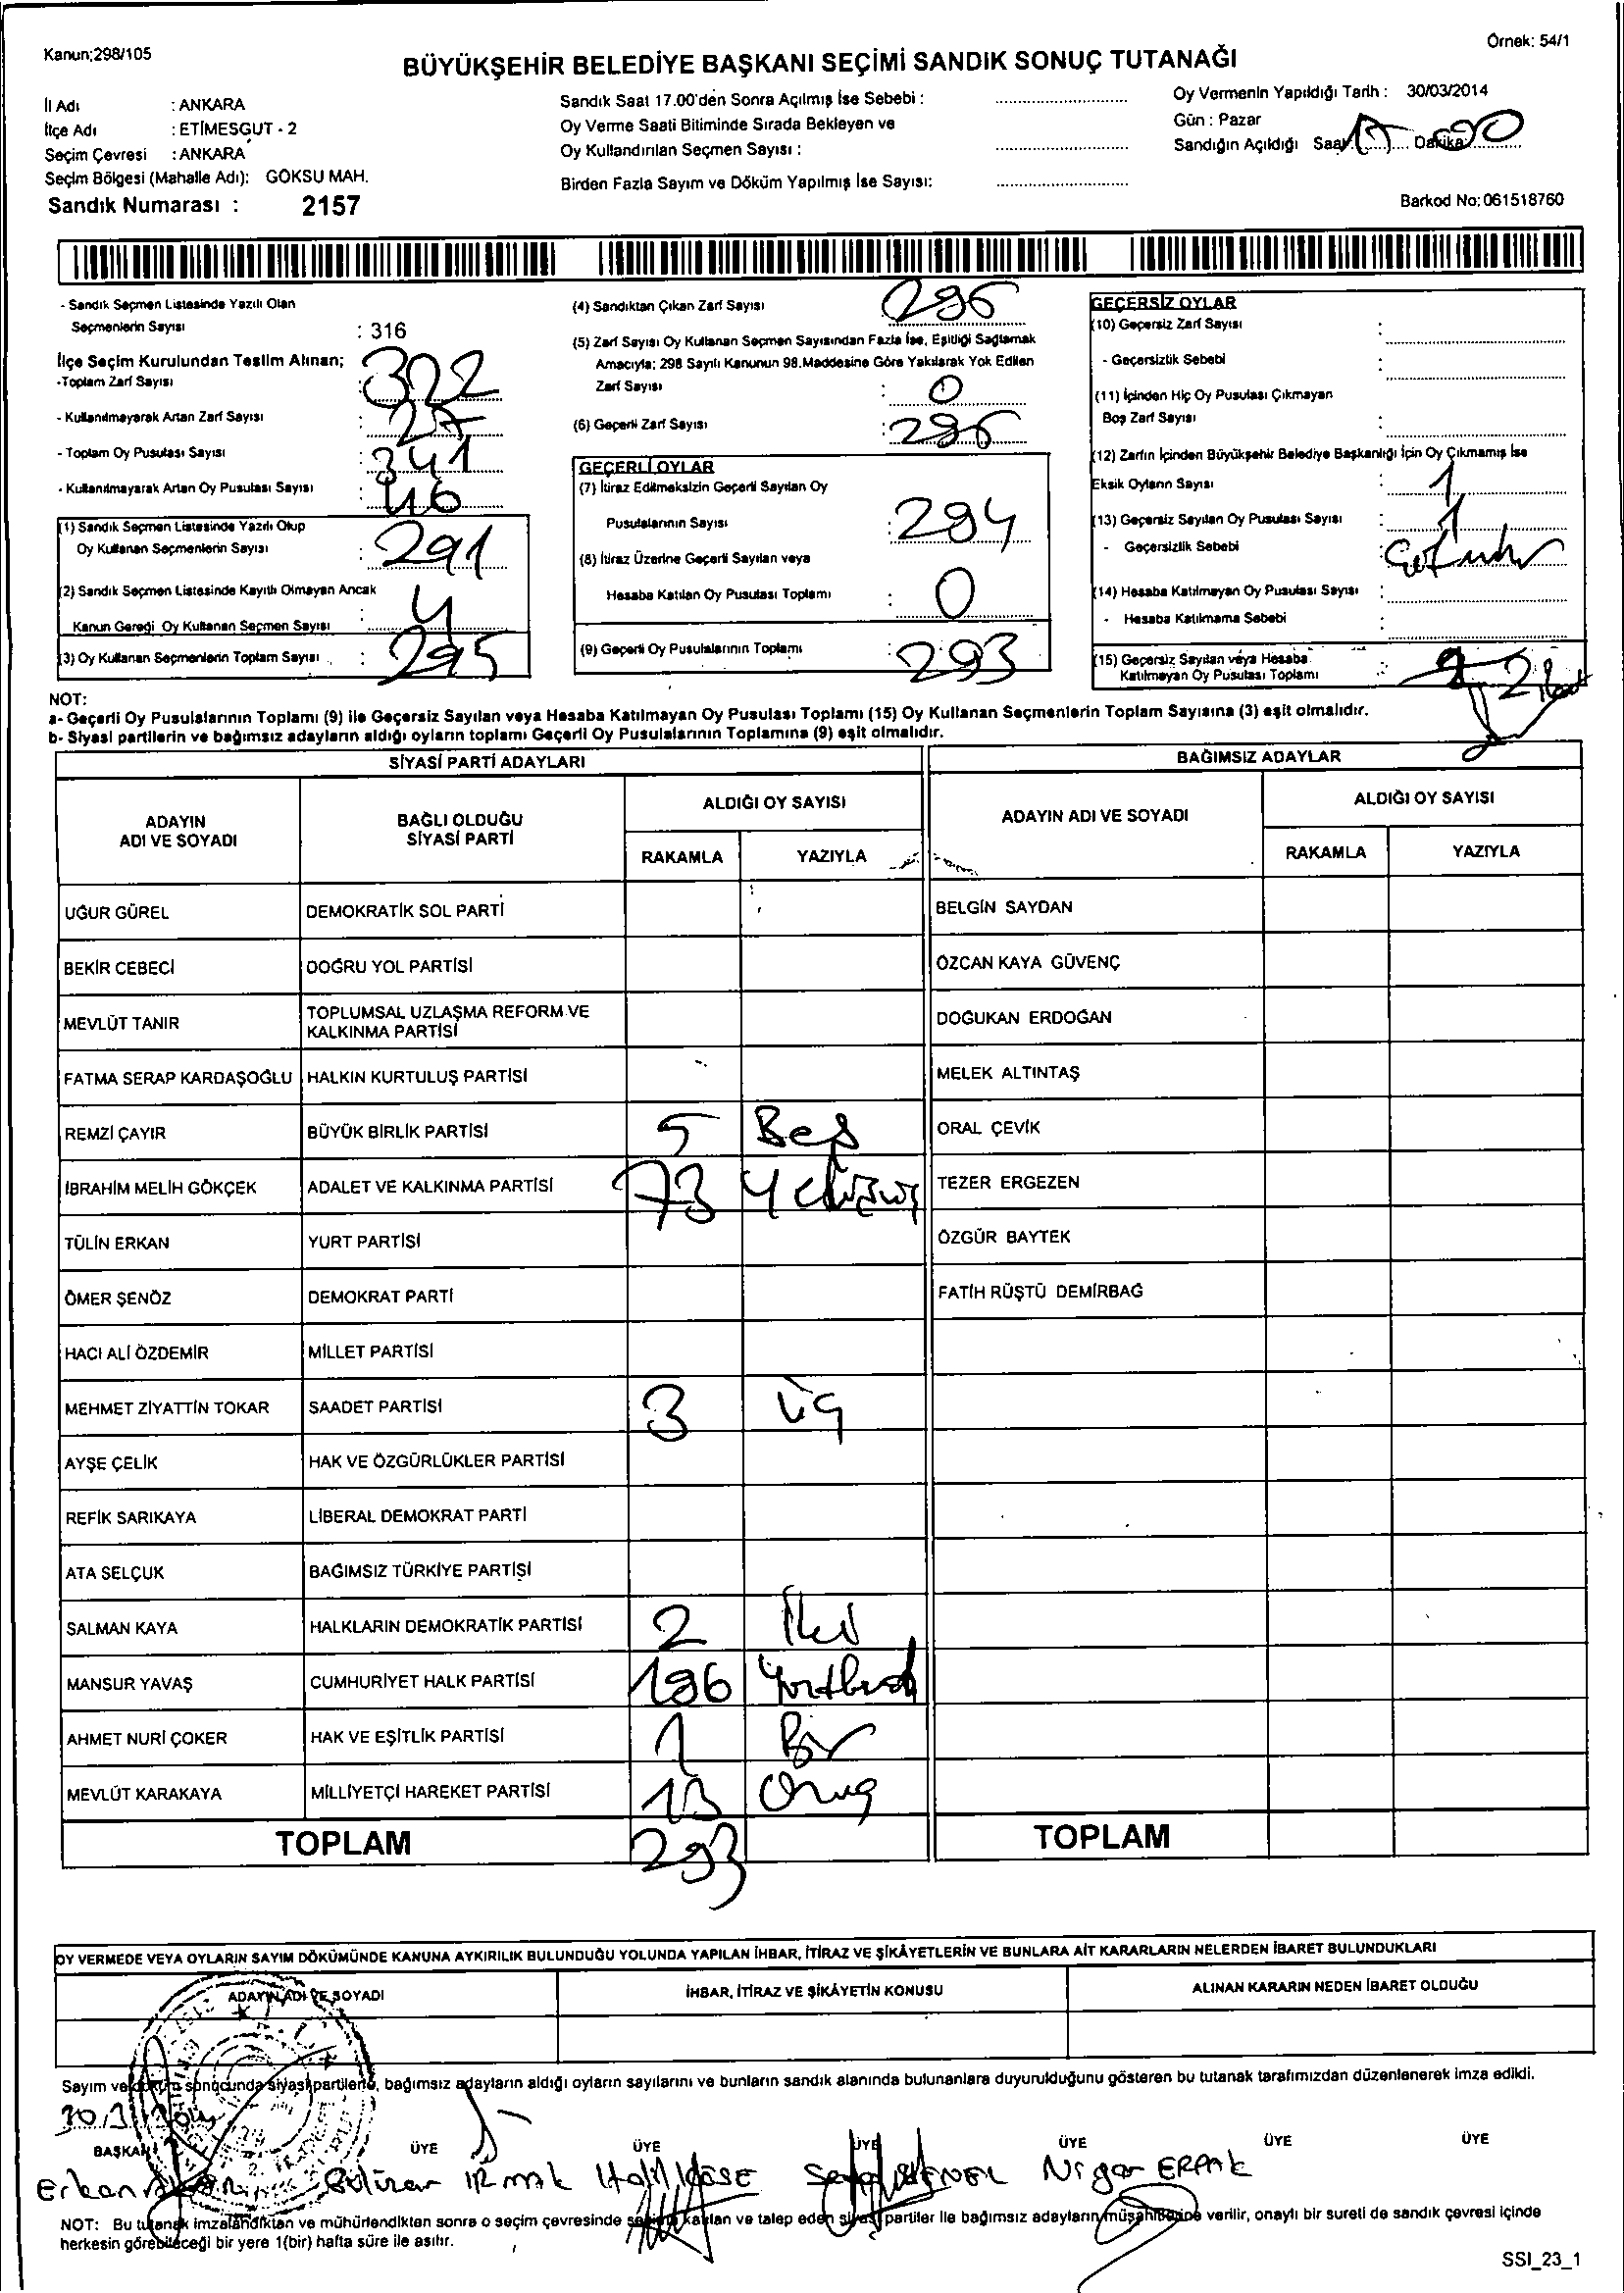 Kanun;298/105
Örnek: 54/1
BÜYÜKŞEHİR BELEDİYE BAŞKANI SEÇİMİ SANDIK SONUÇ TUTANAĞI
İl Adı : ANKARA
İlçe Adı : ETİMESGUT - 2
Seçim Çevresi : ANKARA
Seçim Bölgesi (Mahalle Adı): GÖKSU MAH.
Sandık Numarası : 2157
Sandık Saat 17.00'den Sonra Açılmış İse Sebebi :
Oy Verme Saati Bitiminde Sırada Bekleyen ve
Oy Kullandırılan Seçmen Sayısı :
Birden Fazla Sayım ve Döküm Yapılmış İse Sayısı:
Oy Vermenin Yapıldığı Tarih : 30/03/2014
Gün : Pazar
Sandığın Açıldığı Saat 17 Dakika 00
Barkod No: 061518760
- Sandık Seçmen Listesinde Yazılı Olan
Seçmenlerin Sayısı : 316
İlçe Seçim Kurulundan Teslim Alınan;
-Toplam Zarf Sayısı : 322
- Kullanılmayarak Artan Zarf Sayısı : 27
- Toplam Oy Pusulası Sayısı : 341
- Kullanılmayarak Artan Oy Pusulası Sayısı : 46
(1) Sandık Seçmen Listesinde Yazılı Olup
Oy Kullanan Seçmenlerin Sayısı : 291
(2) Sandık Seçmen Listesinde Kayıtlı Olmayan Ancak
Kanun Gereği Oy Kullanan Seçmen Sayısı : 4
(3) Oy Kullanan Seçmenlerin Toplam Sayısı : 295
(4) Sandıktan Çıkan Zarf Sayısı : 296
(5) Zarf Sayısı Oy Kullanan Seçmen Sayısından Fazla İse, Eşitliği Sağlamak
Amacıyla; 298 Sayılı Kanunun 98.Maddesine Göre Yakılarak Yok Edilen
Zarf Sayısı : 0
(6) Geçerli Zarf Sayısı : 296
GEÇERLİ OYLAR
(7) İtiraz Edilmeksizin Geçerli Sayılan Oy
Pusulalarının Sayısı : 294
(8) İtiraz Üzerine Geçerli Sayılan veya
Hesaba Katılan Oy Pusulası Toplamı : 0
(9) Geçerli Oy Pusulalarının Toplamı : 293
GEÇERSİZ OYLAR
(10) Geçersiz Zarf Sayısı :
- Geçersizlik Sebebi :
(11) İçinden Hiç Oy Pusulası Çıkmayan
Boş Zarf Sayısı :
(12) Zarfın İçinden Büyükşehir Belediye Başkanlığı İçin Oy Çıkmamış İse
Eksik Oyların Sayısı : 1
(13) Geçersiz Sayılan Oy Pusulası Sayısı : 1
- Geçersizlik Sebebi :
(14) Hesaba Katılmayan Oy Pusulası Sayısı :
- Hesaba Katılmama Sebebi :
(15) Geçersiz Sayılan veya Hesaba
Katılmayan Oy Pusulası Toplamı : 2
NOT:
a- Geçerli Oy Pusulalarının Toplamı (9) ile Geçersiz Sayılan veya Hesaba Katılmayan Oy Pusulası Toplamı (15) Oy Kullanan Seçmenlerin Toplam Sayısına (3) eşit olmalıdır.
b- Siyasi partilerin ve bağımsız adayların aldığı oyların toplamı Geçerli Oy Pusulalarının Toplamına (9) eşit olmalıdır.
SİYASİ PARTİ ADAYLARI
ADAYIN ADI VE SOYADI
BAĞLI OLDUĞU SİYASİ PARTİ
ALDIĞI OY SAYISI
RAKAMLA YAZIYLA
UĞUR GÜREL DEMOKRATİK SOL PARTİ
BEKİR CEBECİ DOĞRU YOL PARTİSİ
MEVLÜT TANIR TOPLUMSAL UZLAŞMA REFORM VE KALKINMA PARTİSİ
FATMA SERAP KARDAŞOĞLU HALKIN KURTULUŞ PARTİSİ
REMZİ ÇAYIR BÜYÜK BİRLİK PARTİSİ 5 Beş
İBRAHİM MELİH GÖKÇEK ADALET VE KALKINMA PARTİSİ 73 Yetmişüç
TÜLİN ERKAN YURT PARTİSİ
ÖMER ŞENÖZ DEMOKRAT PARTİ
HACI ALİ ÖZDEMİR MİLLET PARTİSİ
MEHMET ZİYATTİN TOKAR SAADET PARTİSİ 3 Üç
AYŞE ÇELİK HAK VE ÖZGÜRLÜKLER PARTİSİ
REFİK SARIKAYA LİBERAL DEMOKRAT PARTİ
ATA SELÇUK BAĞIMSIZ TÜRKİYE PARTİSİ
SALMAN KAYA HALKLARIN DEMOKRATİK PARTİSİ 2 İki
MANSUR YAVAŞ CUMHURİYET HALK PARTİSİ 196
AHMET NURİ ÇOKER HAK VE EŞİTLİK PARTİSİ 1 Bir
MEVLÜT KARAKAYA MİLLİYETÇİ HAREKET PARTİSİ 13 Onüç
TOPLAM 293
BAĞIMSIZ ADAYLAR
ADAYIN ADI VE SOYADI
ALDIĞI OY SAYISI
RAKAMLA YAZIYLA
BELGİN SAYDAN
ÖZCAN KAYA GÜVENÇ
DOĞUKAN ERDOĞAN
MELEK ALTINTAŞ
ORAL ÇEVİK
TEZER ERGEZEN
ÖZGÜR BAYTEK
FATİH RÜŞTÜ DEMİRBAĞ
TOPLAM
OY VERMEDE VEYA OYLARIN SAYIM DÖKÜMÜNDE KANUNA AYKIRILIK BULUNDUĞU YOLUNDA YAPILAN İHBAR, İTİRAZ VE ŞİKÂYETLERİN VE BUNLARA AİT KARARLARIN NELERDEN İBARET BULUNDUKLARI
ADAYIN ADI VE SOYADI İHBAR, İTİRAZ VE ŞİKÂYETİN KONUSU ALINAN KARARIN NEDEN İBARET OLDUĞU
Sayım ve döküm sonucunda siyasi partilerle, bağımsız adayların aldığı oyların sayılarını ve bunların sandık alanında bulunanlara duyurulduğunu gösteren bu tutanak tarafımızdan düzenlenerek imza edildi.
30.3.2014
BAŞKAN ÜYE ÜYE ÜYE ÜYE ÜYE ÜYE
Erkan IRMAK Halil KÖSE ŞENEL Nigar ERPAK
NOT: Bu tutanak imzalandıktan ve mühürlendikten sonra o seçim çevresinde seçime katılan ve talep eden siyasi partiler ile bağımsız adayların müşahidine verilir, onaylı bir sureti de sandık çevresi içinde
herkesin görebileceği bir yere 1(bir) hafta süre ile asılır.
SSI_23_1